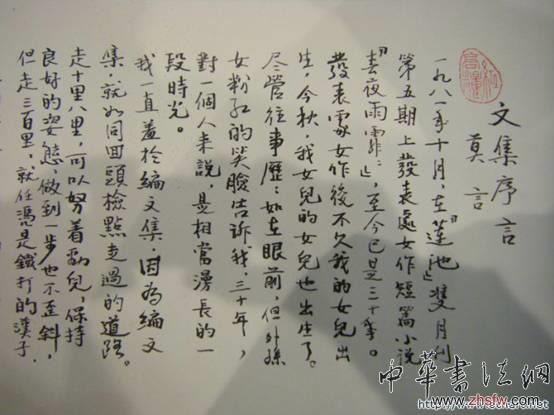 文集序言
莫言
一九八一年十月，在『蓮池』雙月刊
第五期上發表處女作短篇小說
『春夜雨霏霏』，至今已是三十年。
發表處女作後不久我的女兒出
生，今秋，我女兒的女兒也出生了。
尽管往事歷歷如在眼前，但外孫
女粉红的笑臉告訴我，三十年，
對一個人来說，是相當漫長的一
段時光。
我一直羞於編文集，因為編文
集，就如同回頭檢點走過的道路。
走十里八里，可以努着勁兒，保持
良好的姿態，做到一步也不歪斜，
但走三百里，就任憑是鐵打的漢子，
中華書法網
www.zhsfw.com